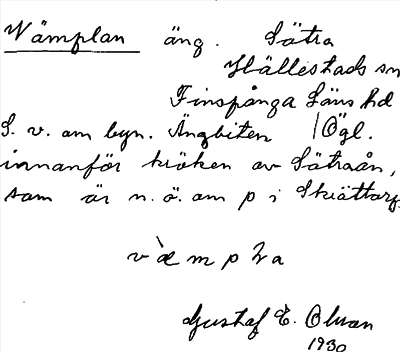 Vämplan äng. Sätra
Hällestads sn
Finspånga Läns hd
S. v. om byn. Ängbiten / Ögl.
innanför kröken av Sätraån,
som är n. ö. om p i
væmpɽa
Gustaf E. Olson
1930